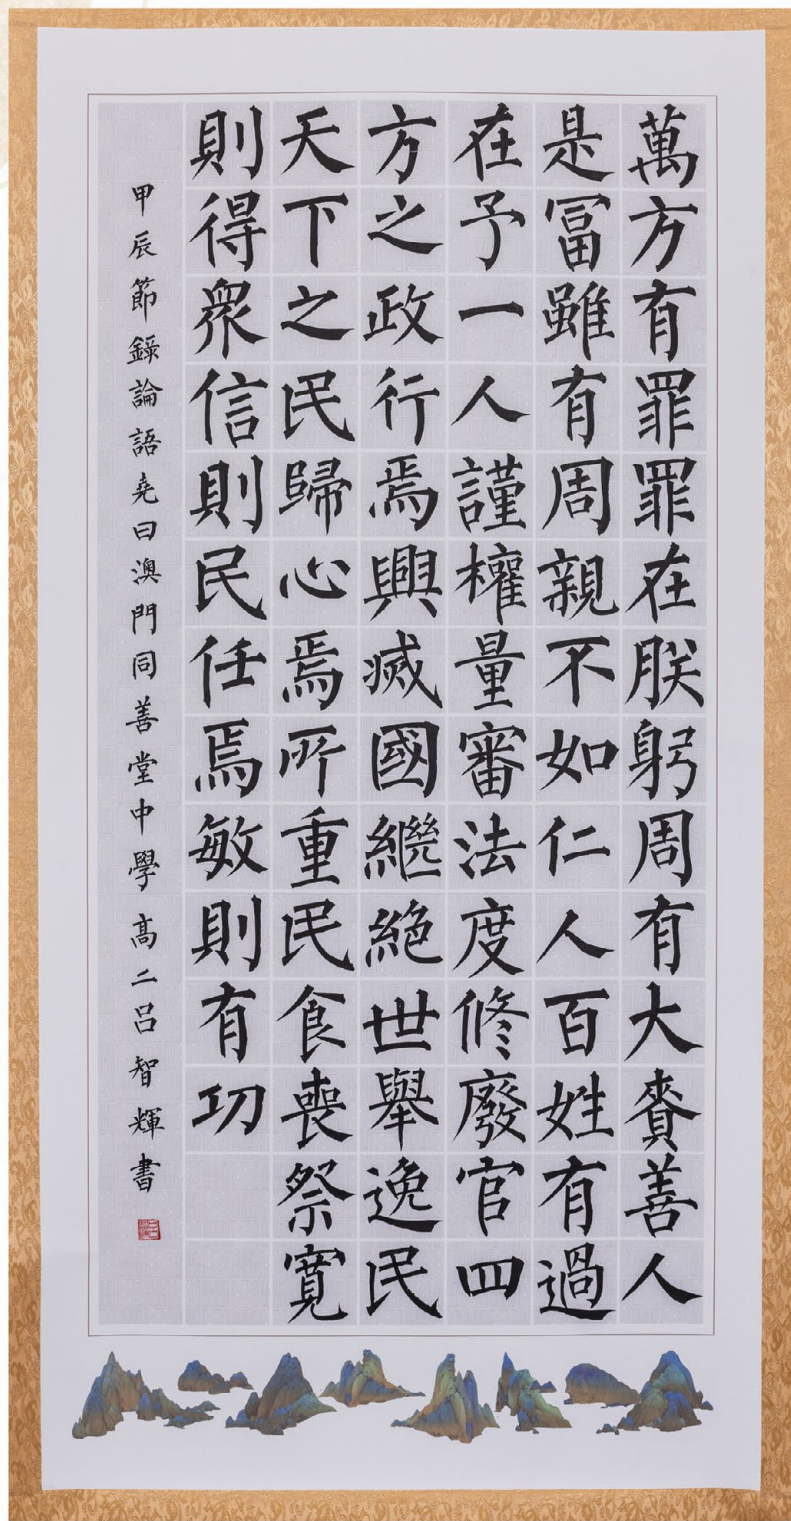 萬方有罪罪在朕躬周有大賚善人
是冨雖有周親不如仁人百姓有過
在予一人謹權量審法度修廢官四
方之政行焉興滅國繼絕世舉逸民
天下之民歸心焉所重民食喪祭寬
則得衆信則民任焉敏則有功
甲辰節錄論語堯曰澳門同善堂中學高二呂智輝書